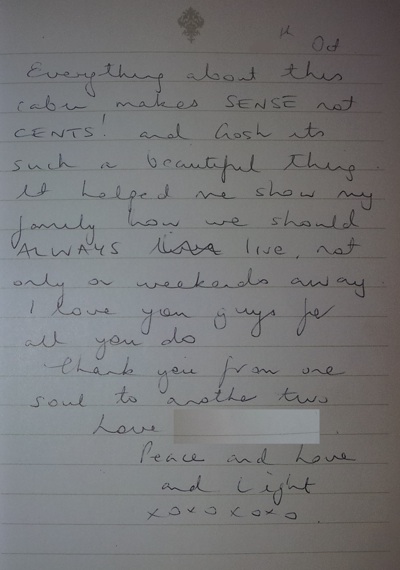 Oct
Everything about this
cabin makes SENSE not
CENTS! and Gosh its
such a beautiful thing.
It helped me show my
family how we should
ALWAYS live, not
only on weekends away.
I love you guys for
all you do
Thank you from one
soul to another two
Love
Peace and Love
and Light
xoxoxoxo